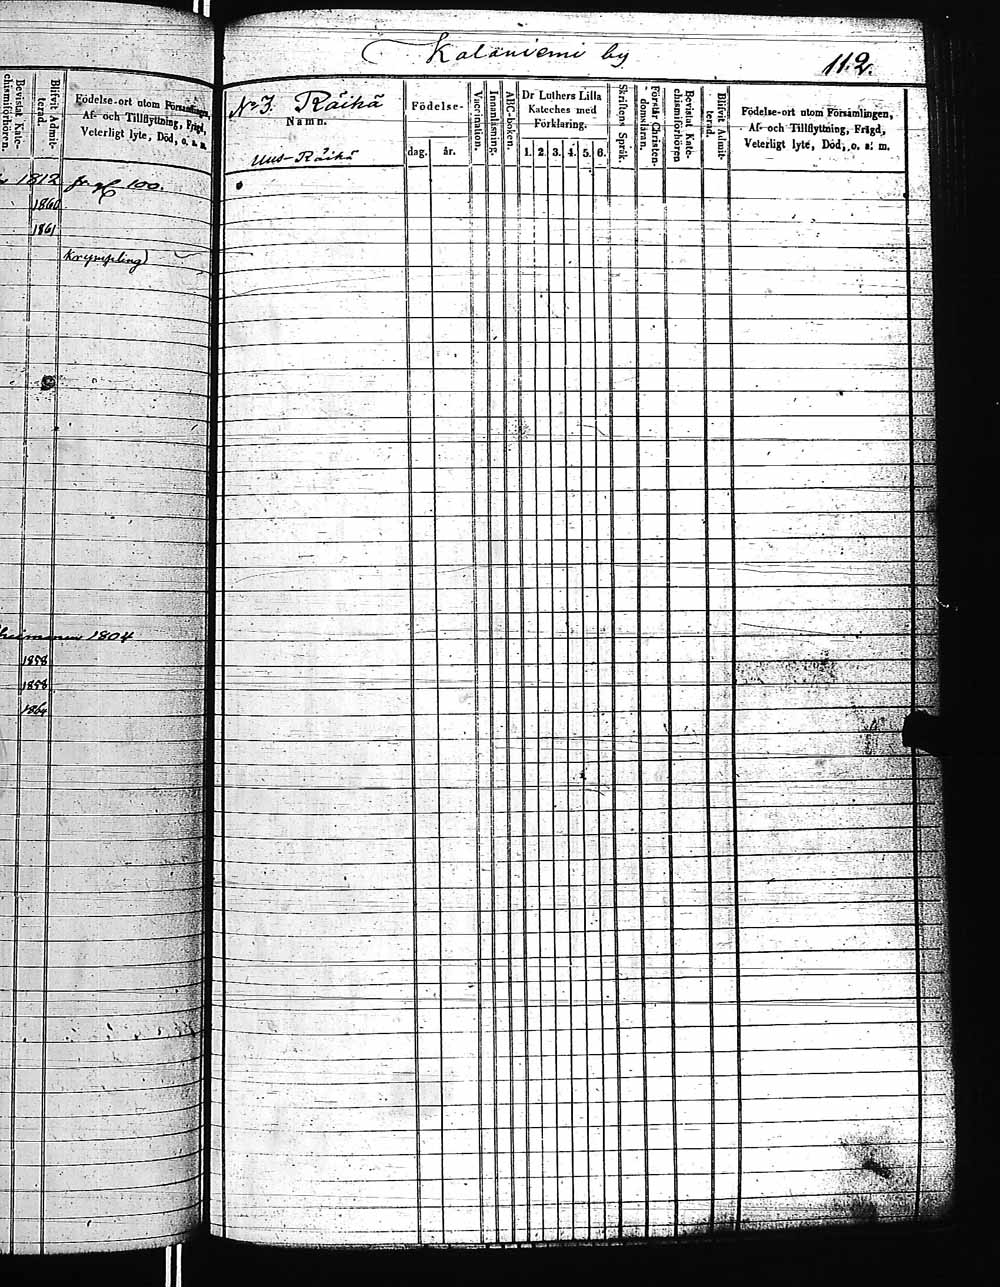 Bevistat Kate-
chismiförhören.
Blifvit Admit-
terad.
Födelse-ort utom Församlingen,
Af- och Tillflyttning, Frägd,
Veterligt lyte, Död, o. s. m.
1812
100.
1860
1861
Krympling
1804
1858
1858
1864
Kalaniemi by
112.
No 3. Räihä
Namn.
Uus-Räihä
Födelse-
dag. år.
Vaccination.
Innanläsning.
ABC-boken.
Dr Luthers Lilla
Kateches med
Förklaring.
1. 2. 3. 4. 5. 6.
Skriftens Språk.
Förstår Christen-
domsläran.
Bevistat Kate-
chismiförhören
Blifvit Admit-
terad.
Födelse-ort utom Församlingen,
Af- och Tillflyttning, Frägd,
Veterligt lyte, Död, o. s. m.